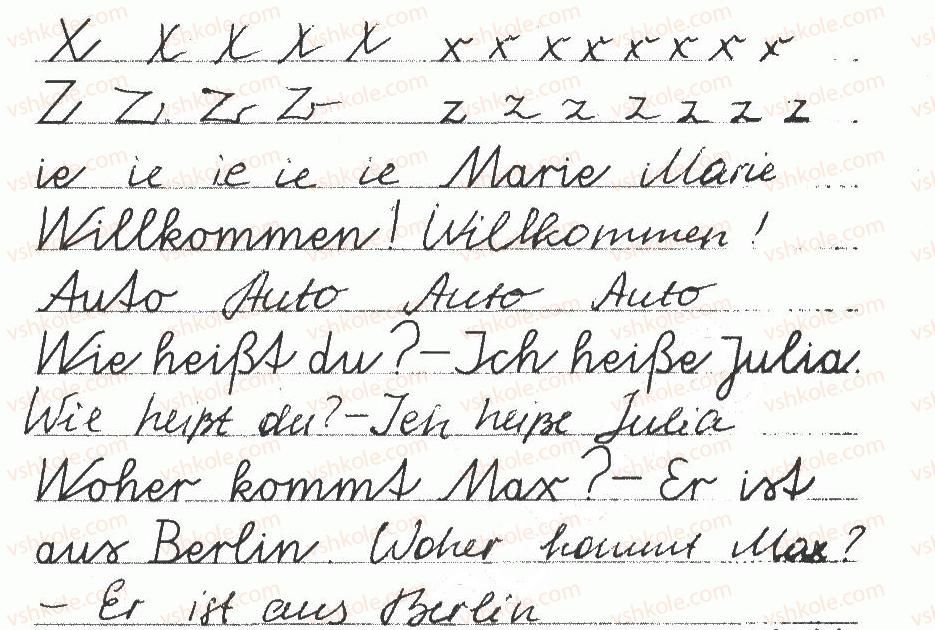 X X X X X x x x x x x x x
Z Z Z Z z z z z z z z
ie ie ie ie ie Marie Marie
Willkommen! Willkommen!
Auto Auto Auto Auto
Wie heißt du? – Ich heiße Julia.
Wie heißt du? – Ich heiße Julia
Woher kommt Max? – Er ist
aus Berlin. Woher kommt Max?
– Er ist aus Berlin